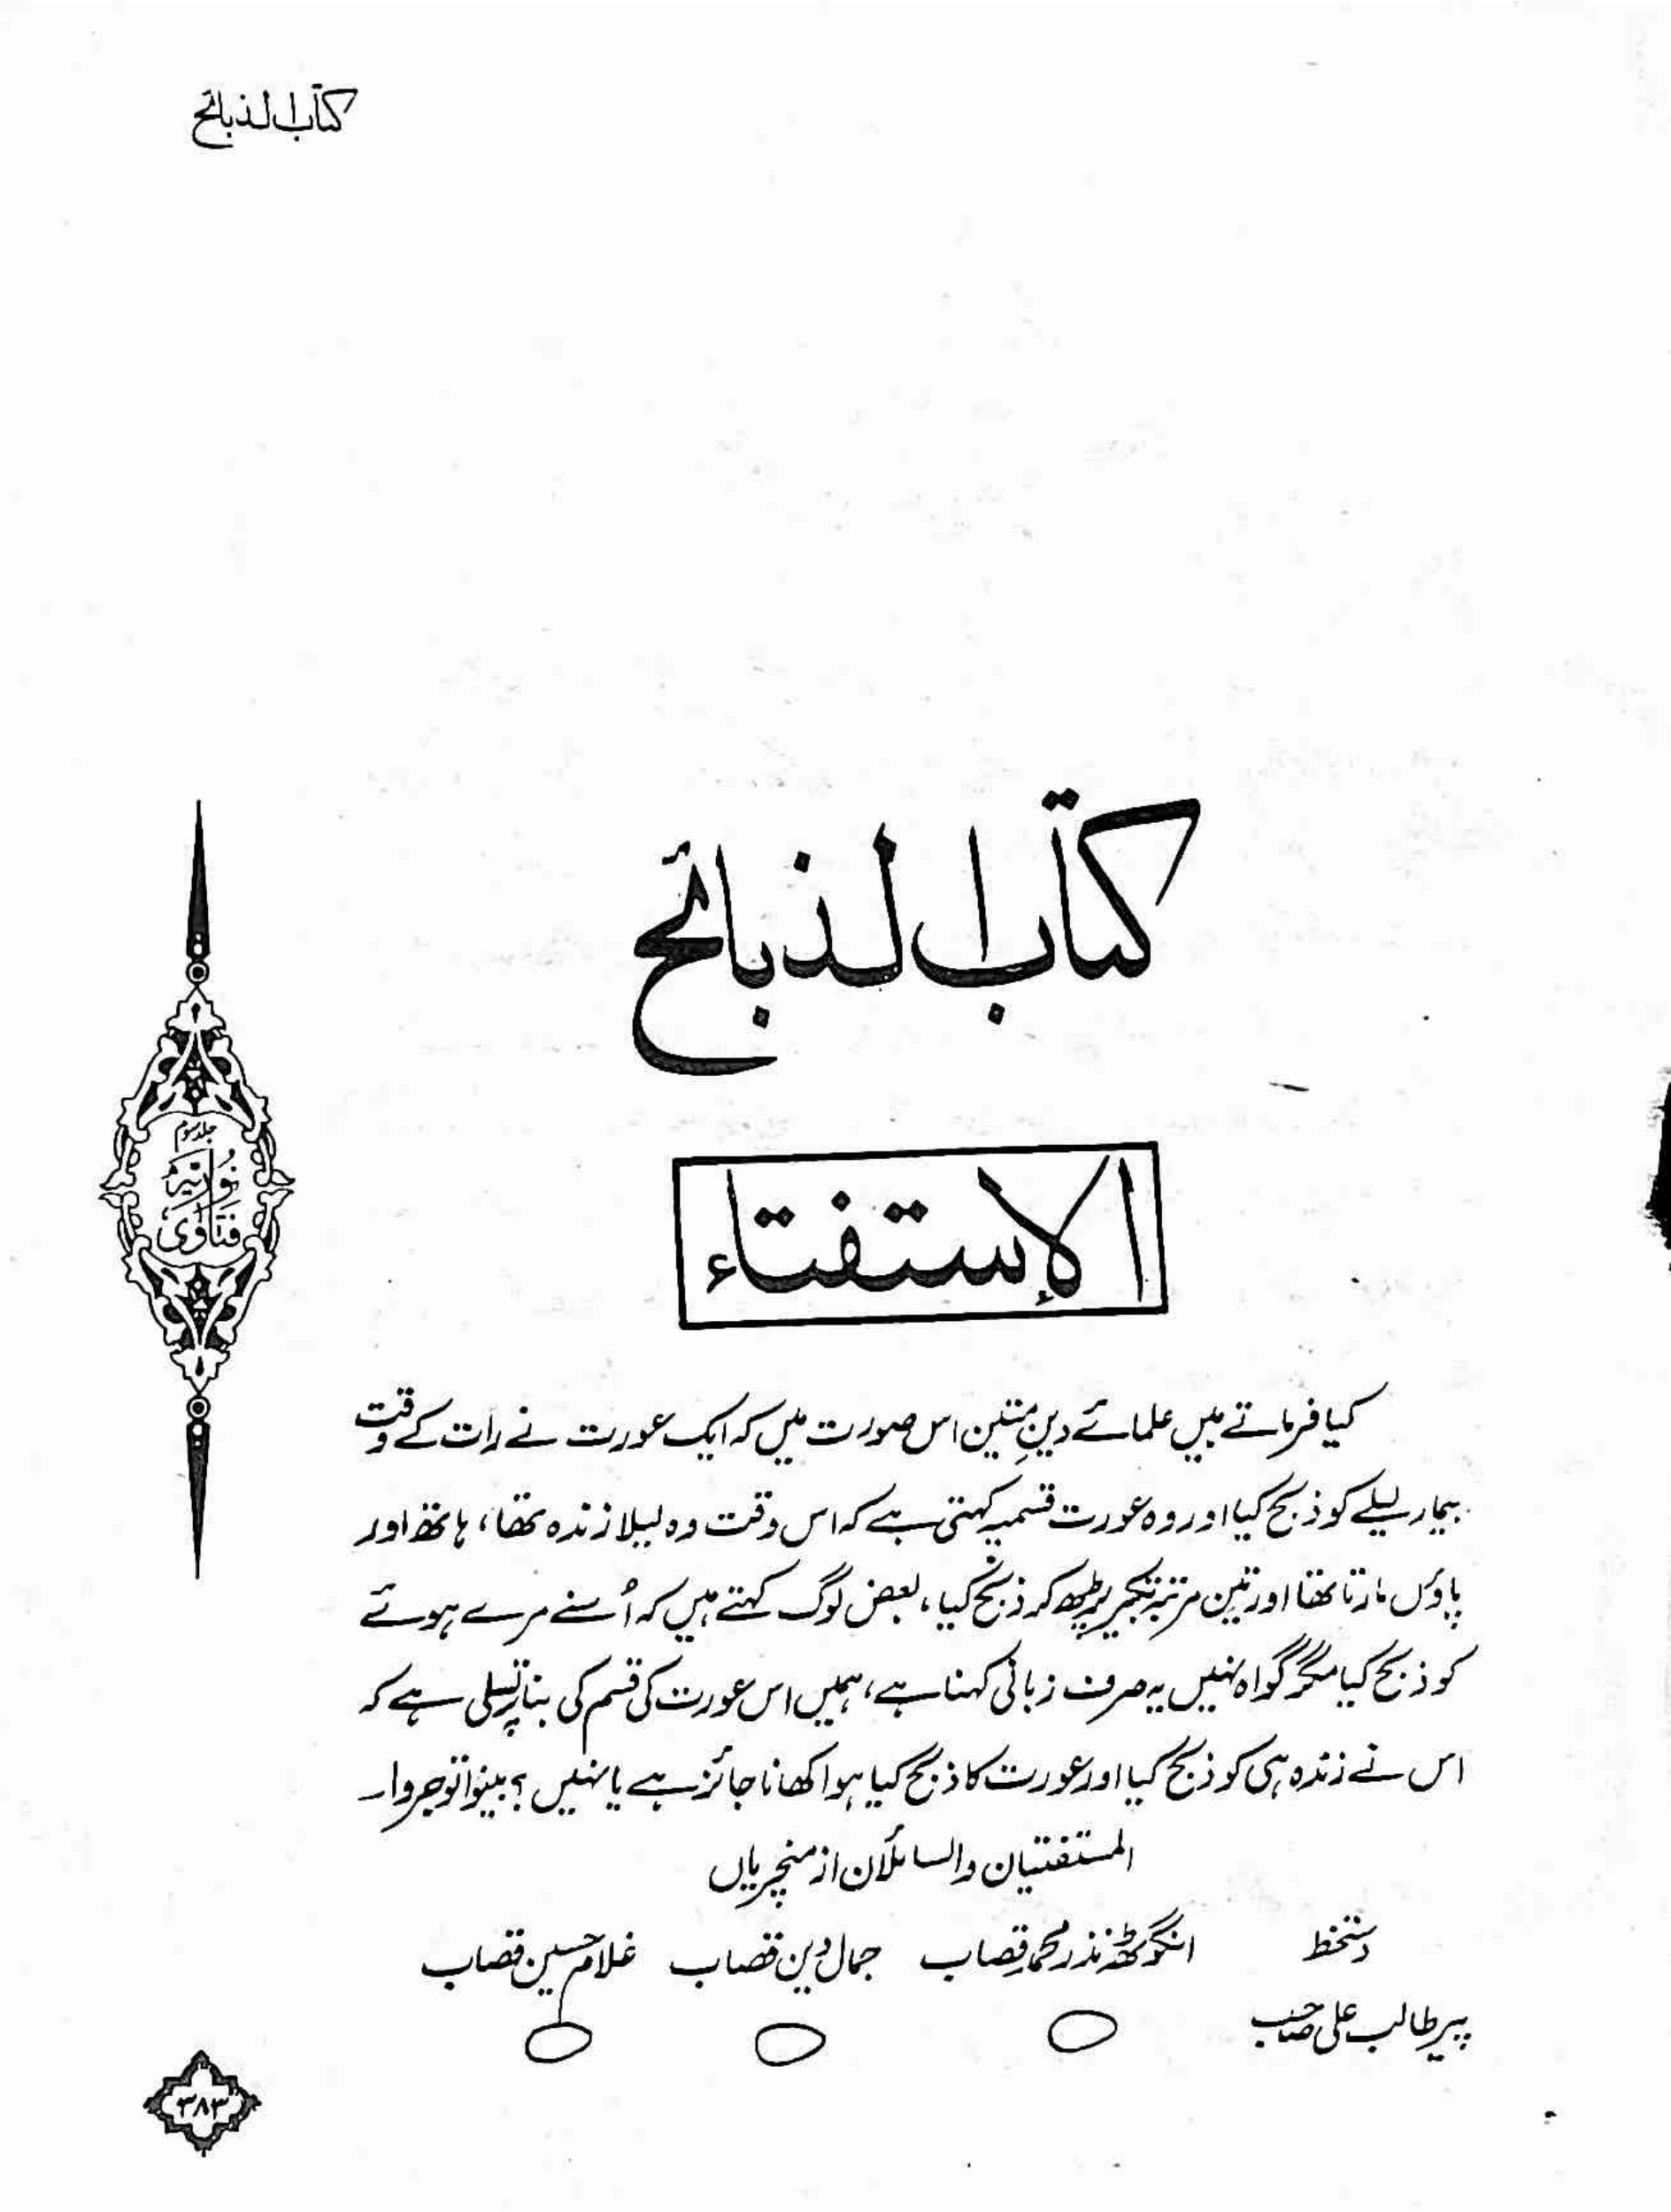 کتاب الذبائح
کتاب الذبائح
الإستفتاء
کیا فرماتے ہیں علمائے دینِ متین اس صورت میں کہ ایک عورت نے رات کے وقت
بیمار لیلے کو ذبح کیا اور وہ عورت قسمیہ کہتی ہے کہ اس وقت وہ لیلا زندہ تھا، ہاتھ اور
پاؤں مارتا تھا اور تین مرتبہ تکبیر پڑھ کر ذبح کیا، بعض لوگ کہتے ہیں کہ اُسنے مرے ہوئے
کو ذبح کیا مگر گواہ نہیں یہ صرف زبانی کہنا ہے، ہمیں اس عورت کی قسم کی بنا پر تسلی ہے کہ
اس نے زندہ ہی کو ذبح کیا اور عورت کا ذبح کیا ہوا کھانا جائز ہے یا نہیں؟ بینوا توجروا۔
المستفتیان والسائلان از منچریاں
دستخط انگوٹھہ نذر محمد قصاب جمال دین قصاب غلام حسین قصاب
پیر طالب علی صاحب
جلد سوم
نوریہ
فتاوٰی
۳۸۳